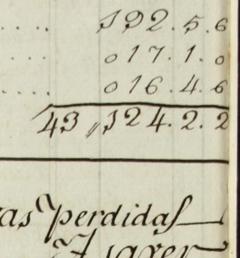 592.5.6
017.1.0
016.4.6
43,,524.2.2
as perdidas